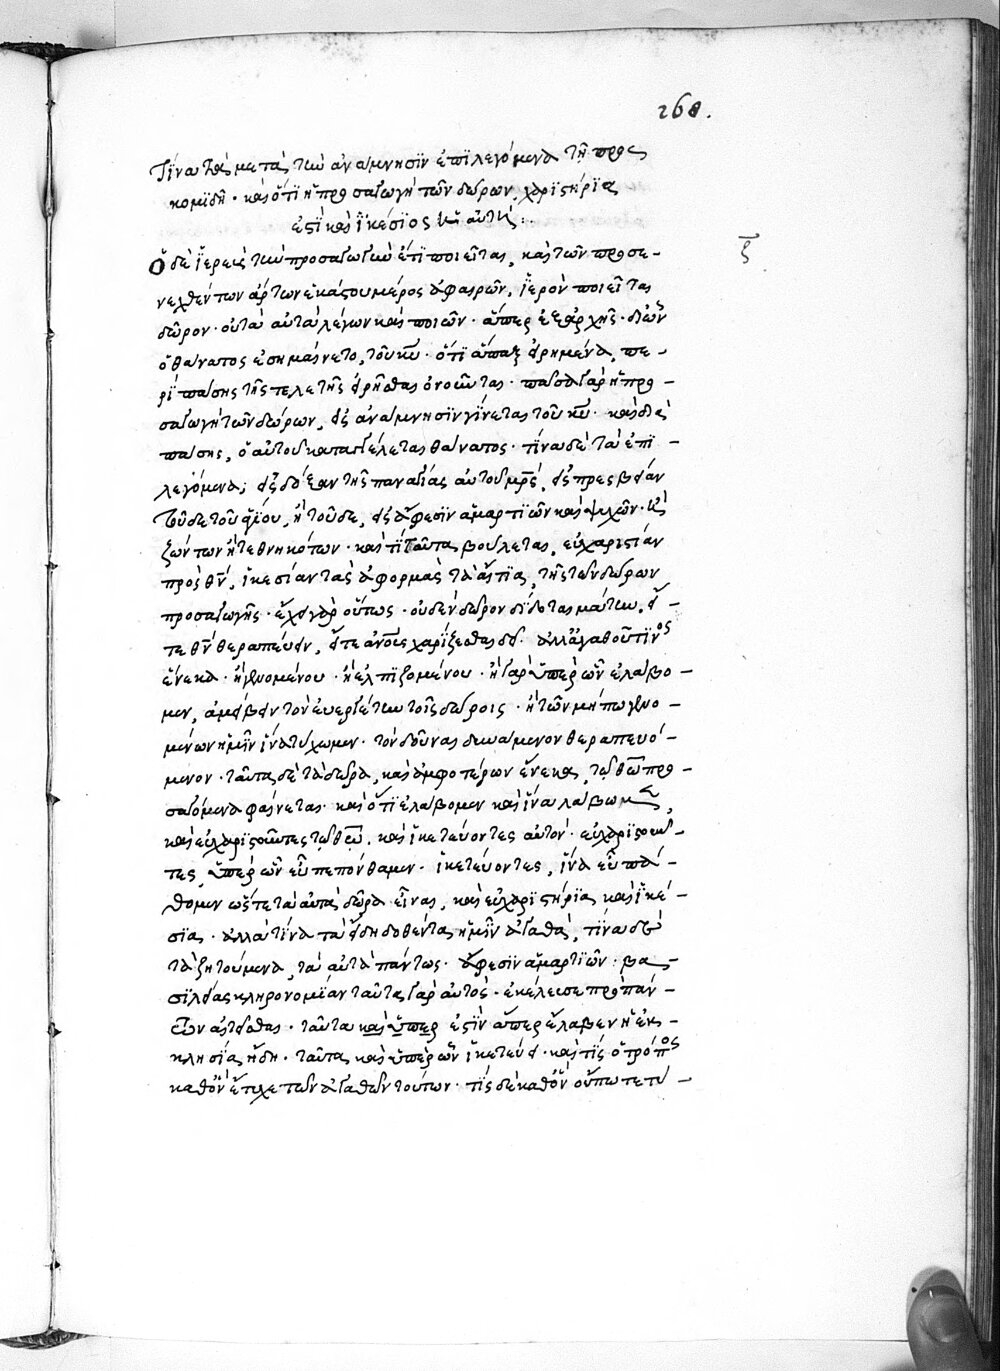 268.
Τίνα τὰ μετὰ τὴν ἀνάμνησϊν ἐπϊλεγόμενα τῆ προς
κομϊδῆ · καὶ ὅτϊ ἡ προσαγωγὴ τῶν δώρων, χαρϊστήρϊα
ἐστὶ καὶ ἱκέσϊος κ(αὶ) αὐτὴ :·
ζ
Ὁ δὲ ἱερεὺς τὴν προσαγωγὴν ἔτϊ ποιεῖται, καὶ τῶν προσε-
νεχθέντων ἄρτων ἑκάστου μέρος ἀφαιρῶν, ἱερὸν ποιεῖται
δῶρον · τὰ αὐτὰ λέγων καὶ ποιῶν · ἅπερ ἐξαρχῆς · δι' ὧν
ὁ θάνατος ἐσημαίνετο, τοῦ κυ · ὅτϊ ἅπαξ εἰρημένα, πε-
ρὶ πάσης τῆς τελετῆς εἰρῆσθαι νοοῦνται · πᾶσα γὰρ ἡ προ-
σαγωγὴ τῶν δώρων, εἰς ἀνάμνησϊν γίνεται τοῦ κυ · καὶ διὰ
πάσης, ὁ αὐτοῦ καταγγέλεται θάνατος · τίνα δὲ τὰ ἐπϊ-
λεγόμενα; εἰς δόξαν τῆς παναγίας αὐτοῦ μρς, εἰς πρεσβείαν
τοῦδε τοῦ ἁγίου, ἢ τοῦδε, εἰς ἄφεσϊν ἁμαρτϊῶν καὶ ψυχῶν · κ(αὶ)
ζώντων ἢ τεθνηκότων · καὶ τί ταῦτα βούλεται, εὐχαρϊστίαν
πρὸς θν, ἱκεσίαν τὰς ἀφορμὰς τὰ αἴτϊα, τῆς τῶν δώρων
προσαγωγῆς · ἔχει γὰρ οὕτως · οὐδὲν δῶρον δίδοται μάτην, εἴ-
τε θν θεραπεύειν, εἴτε ανοις χαρίζεσθαι δεῖ · ἀλλ' ἀγαθοῦ τϊνος
ἕνεκα · ἢ γενομένου · ἢ ἐλπϊζομένου · ἢ γὰρ ὑπὲρ ὧν ἐλάβο-
μεν, ἀμείβειν τὸν εὐεργέτην τοῖς δώροις · ἢ τῶν μήπω γενο-
μένων ἡμῖν ἵνα τύχωμεν · τὸν δοῦναι δυνάμενον θεραπευό-
μενον · ταῦτα δὲ τὰ δῶρα, καὶ ἀμφοτέρων ἕνεκα, τῷ θῶ προ-
σαγόμενα φαίνεται · καὶ ὅτϊ ἐλάβομεν καὶ ἵνα λάβωμεν,
καὶ εὐχαρϊστοῦντες τῷ θῶ, καὶ ἱκετεύοντες αὐτόν · εὐχαρϊστοῦν-
τες, ὑπὲρ ὧν εὖ πεπόνθαμεν · ἱκετεύοντες, ἵνα εὖ πά-
θομεν ὥστε τὰ αὐτὰ δῶρα εἶναι, καὶ εὐχαρϊστήρϊα καὶ ἱκέ-
σϊα · ἀλλὰ τίνα τὰ ἤδη δοθέντα ἡμῖν ἀγαθά, τίνα δὲ
τὰ ζητούμενα, τὰ αὐτὰ πάντως · ἄφεσϊν ἁμαρτϊῶν · βα-
σϊλείας κληρονομίαν ταῦτα γὰρ αὐτὸς · ἐκέλευσε πρὸ πάν-
των αἰτεῖσθαι · ταῦτα καὶ ὑπὲρ ἐστϊν ἅπερ ἔλαβεν ἡ ἐκ-
κλησία ἤδη · ταῦτα καὶ ὑπὲρ ὧν ἱκετεύει · καὶ τίς ὁ τρόπος
καθ' ὃν ἔτυχε τῶν ἀγαθῶν τούτων · τίς δὲ καθ' ὃν οὔπω τετύ-